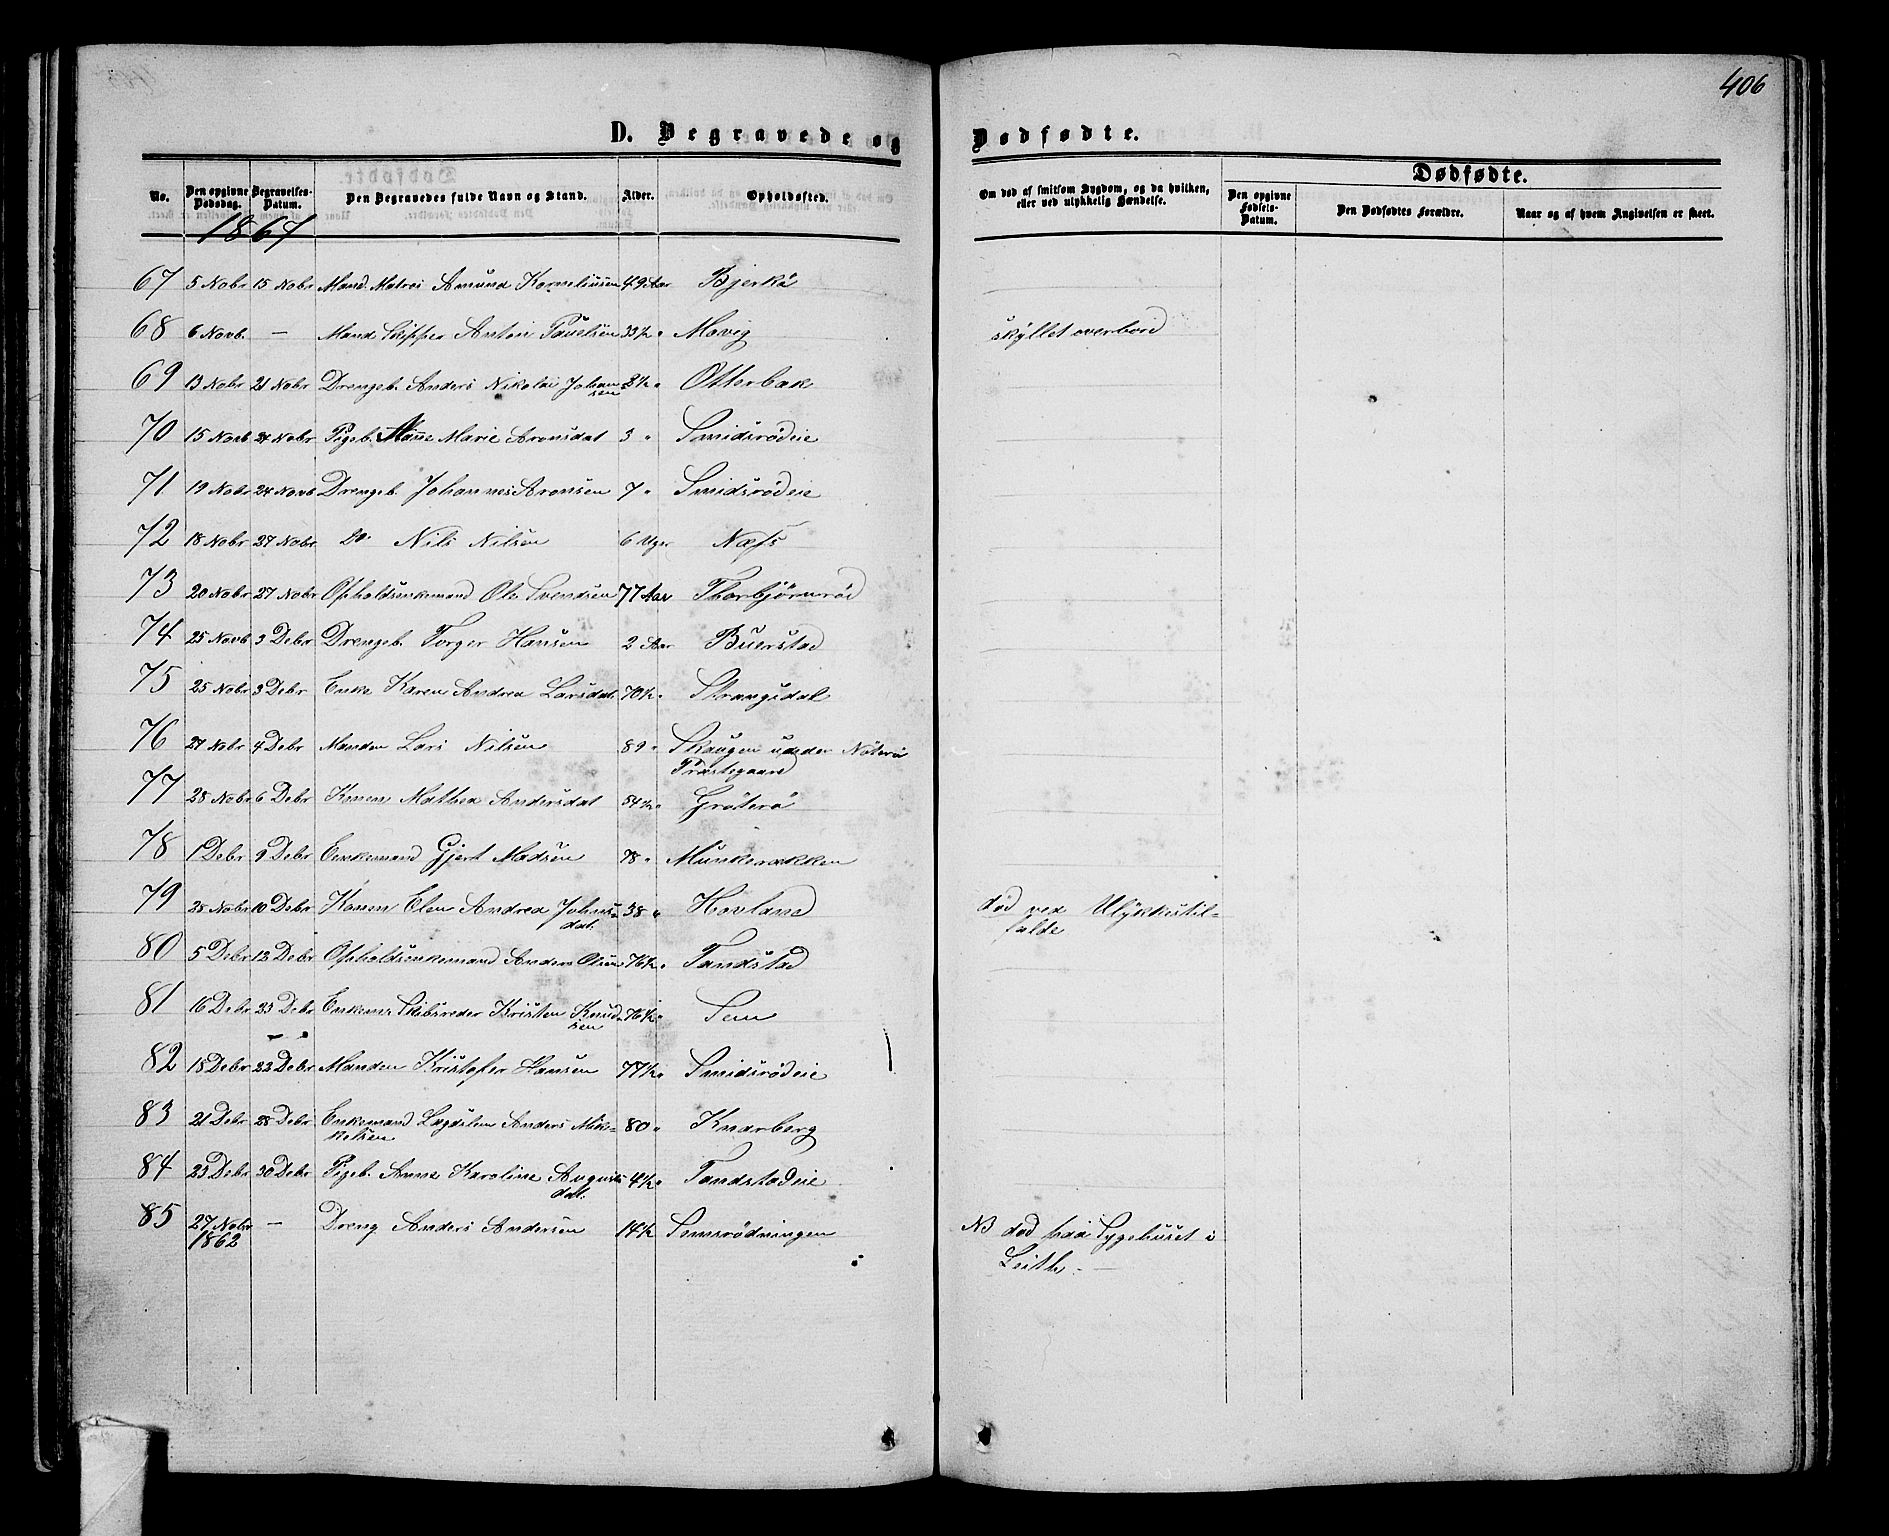 406
D. Begravede og Dødfødte.
No. Den opgivne Dødsdag. Begravelses-Datum. Den Begravedes fulde Navn og Stand. Alder. Opholdssted. Om død af smitsom Sygdom, og da hvilken, eller ved ulykkelig Hændelse. Dødfødte. Den opgivne Fødsels-Datum. Den Dødfødtes Forældre. Naar og af hvem Angivelsen er skeet.
1864
67 5 Nobr 15 Nobr Mand. Matros Amund Korneliussen 49 Aar Bjerkö
68 6 Novb. — Mand Skipper Anton Paulsen 33½ " Movig skyllet overbord
69 13 Nobr 21 Nobr Drengeb. Anders Nikolai Johan 3½ " Otterbæk
sen
70 15 Novb 24 Nobr Pigeb. Anne Marie Aronsdat 3 " Smidsrödeie
71 19 Nobr 24 Novb Drengeb. Johannes Aronsen 7 " Smidsrödeie
72 18 Nobr 27 Nobr Do. Nils Nilsen 6 Uger Næss
73 20 Nobr 27 Nobr Opholdsenkemand Ole Svendsen 77 Aar Thorbjörnröd
74 25 Novb 3 Debr Drengeb. Torger Hansen 2 Aar Buerstad
75 25 Nobr 3 Debr Enke Karen Andrea Larsdat. 70½ " Strangsdal
76 27 Nobr 4 Debr Manden Lars Nilsen 89 " Skaugen under Nöterö
Præstegaard
77 28 Nobr 6 Debr Konen Mathea Andersdat 54½ " Gröterö
78 1 Debr 9 Debr Enkemand Gjert Madsen 78 " Munkerækken
79 28 Nobr 10 Debr Konen Elen Andrea Johans- 38 " Hovland död ved Ulykkestil-
dat. fælde
80 5 Debr 12 Debr Opholdsenkemand Anders Olsen 76½ " Tandstad
81 16 Debr 23 Debr Enkem. Skibsreder Kristen Knud- 76½ " Sem
sen
82 18 Debr 22 Debr Manden Kristofer Hansen 77½ " Smidsrödeie
83 21 Debr 28 Debr Enkemand Lægdslem Anders Mik- 80 " Knarberg
kelsen
84 23 Debr 30 Debr Pigeb. Anne Karoline August- 4½ " Tandstadeie
dat.
85 27 Nobr — Dreng Anders Andersen 14½ Semsrödningen NB död paa Sygehuset i
1862 Leith. —